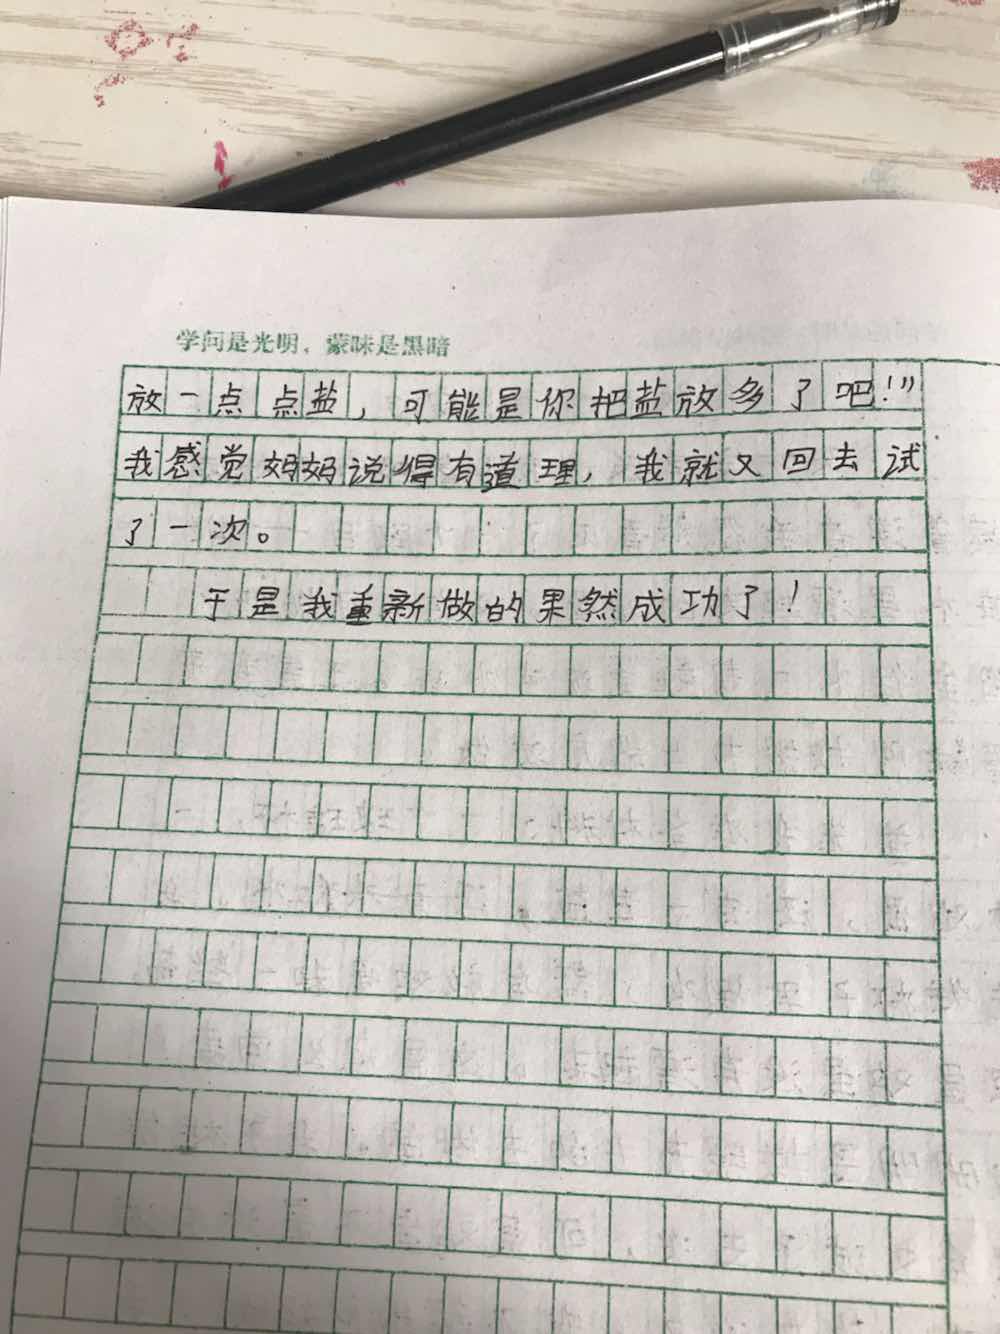 学问是光明，蒙昧是黑暗
放一点点盐，可能是你把盐放多了吧！”
我感觉妈妈说得有道理，我就又回去试
了一次。
于是我重新做的果然成功了！